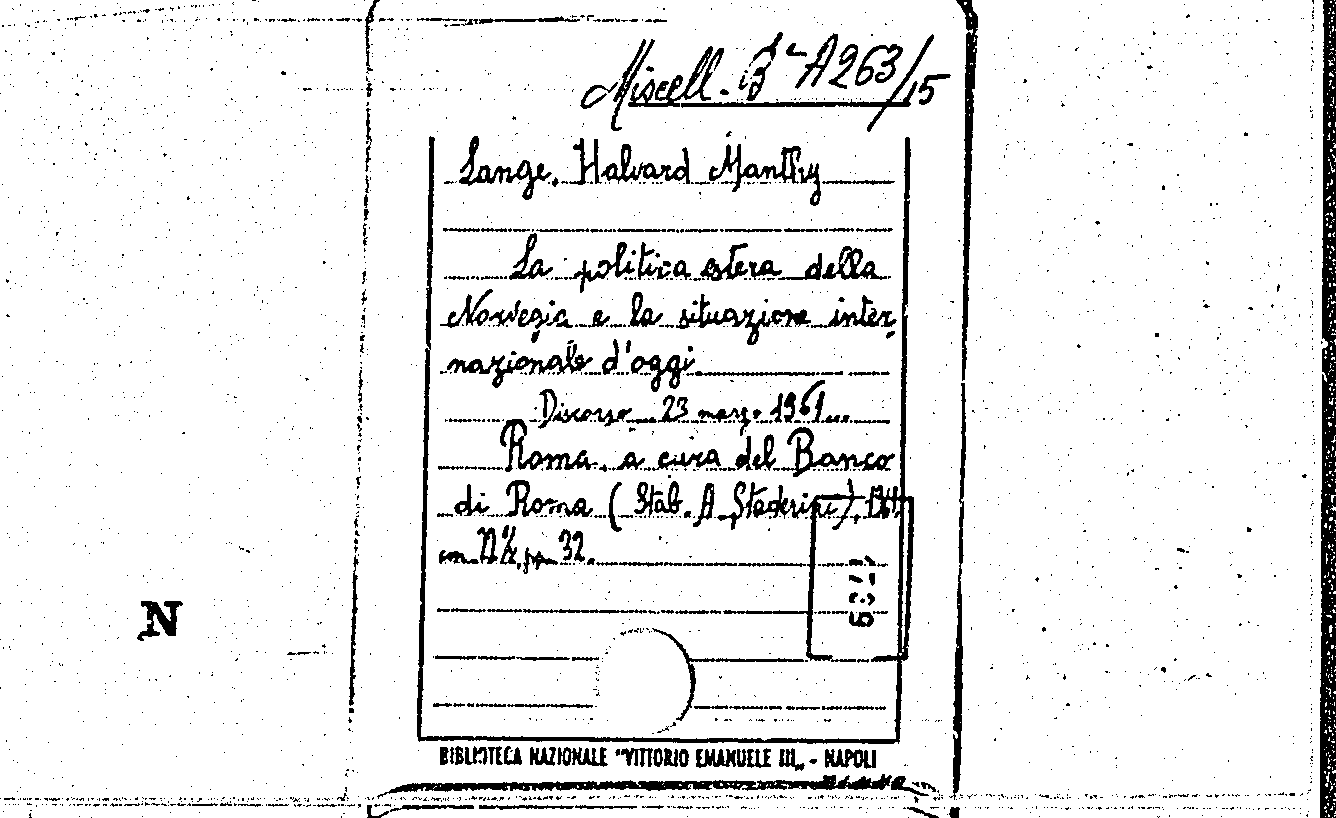 Miscell. Bª A263/15
Lange, Halvard Manthy
La politica estera della
Norvegia e la situazione inter
nazionale d'oggi.
Discorso 23 marzo 1961...
Roma, a cura del Banco
di Roma (Stab. A. Staderini),
cm. pp. 32.
N
BIBLIOTECA NAZIONALE "VITTORIO EMANUELE III„ - NAPOLI